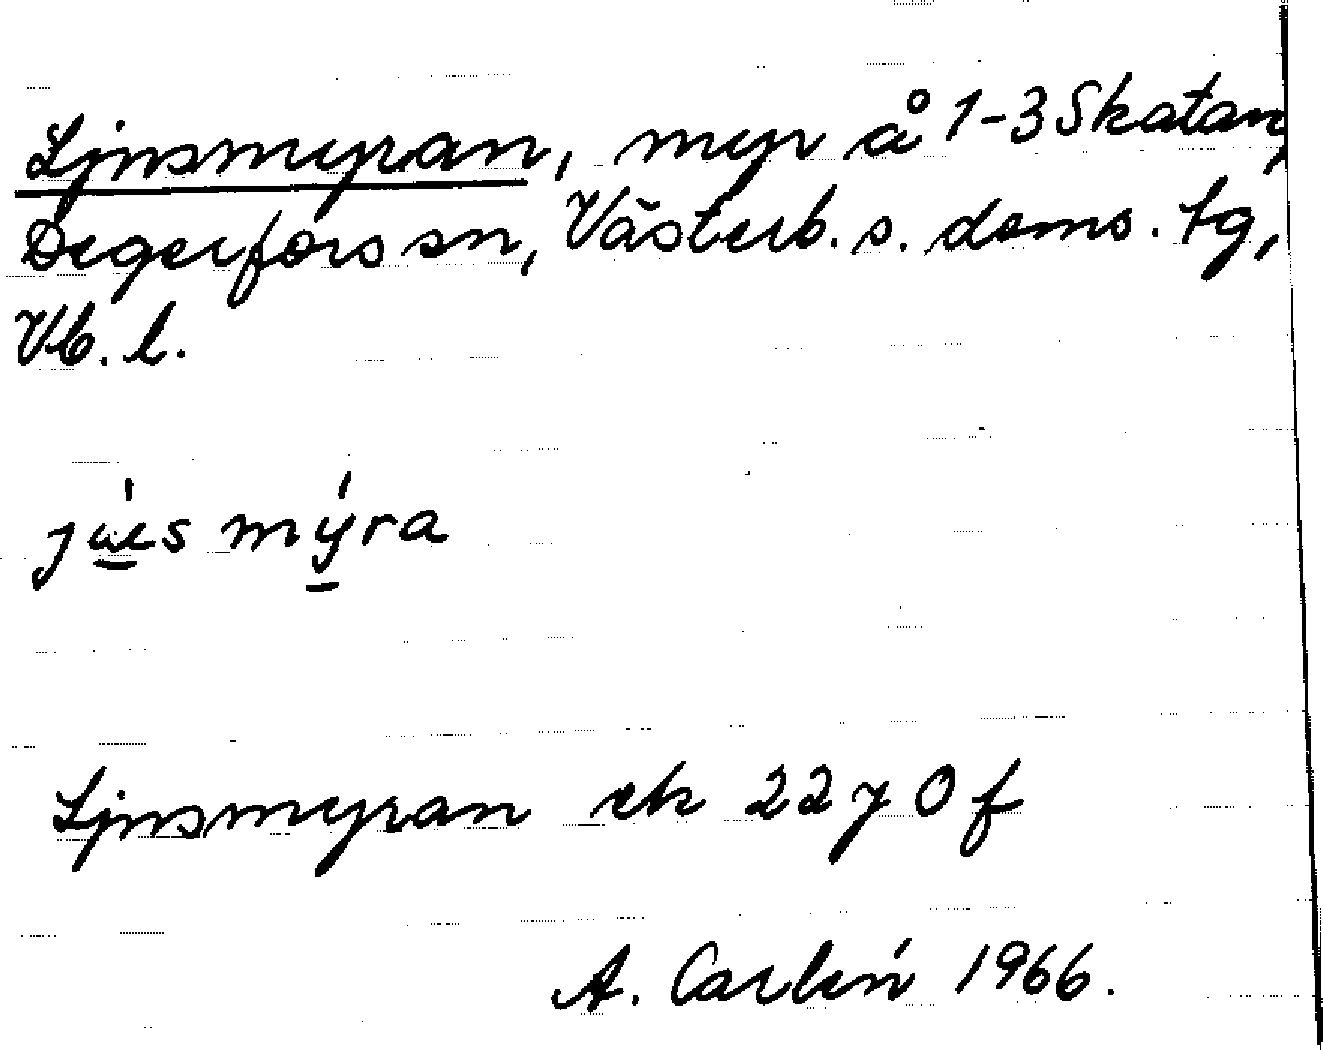 Ljusmyran, myr å 1-3 Skatan,
Degerfors sn, Västerb. s. doms. tg,
Vb. l.
mýra
Ljusmyran ek 22 y 0 f
A. Carlén 1966.